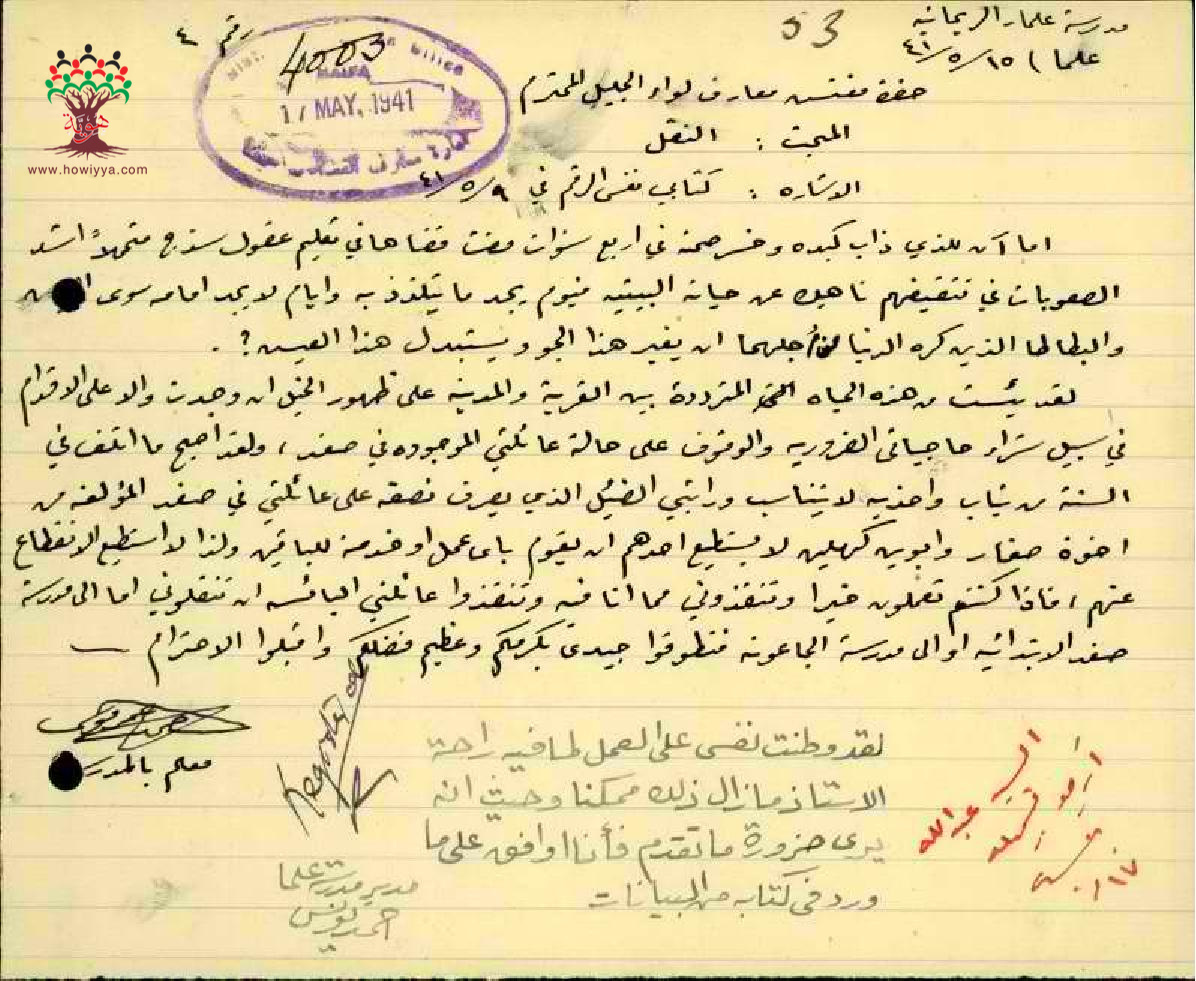 مدرسة علما والريحانيه
علما ) ١٥/٥/٤١
53
رقم ٤
4003
HAIFA
17 MAY. 1941
هوية
www.howiyya.com
حضرة مفتش معارف لواء الجليل المحترم
المبحث : النقل
الاشاره : كتابي نفس الرقم في ٩/٥/٤١
اما آن للذي ذاب كبده وخسر صحته في اربع سنوات مضت قضاها في تعليم عقول سذج متحملاً اشد
الصعوبات في تثقيفهم ناهيك عن حياته البيتيه فيوم يجد ما يتلذذ به وايام لا يجد امامه سوى
والبطاطا الذين كره الدنيا من أجلهما ان يغير هذا الجو ويستبدل هذا العيش ؟ .
لقد يئست من هذه الحياه المترددة بين القرية والمدينه على ظهور الخيل ان وجدت والا على الاقدام
في سبيل شراء حاجياتي الضروريه والوقوف على حالة عائلتي الموجوده في صفد ، ولقد اصبح ما اتلف في
السنة من ثياب واحذيه لا يتناسب وراتبي الضئيل الذي يصرف نصفه على عائلتي في صفد المؤلفه من
اخوة صغار وابوين كهلين لا يستطيع احدهم ان يقوم باى عمل او خدمة للباقين ولذا لا استطيع الانقطاع
عنهم ، فاذا كنتم تعملون خيرا وتنقذوني مما انا فيه وتنقذوا عائلتي البائسه ان تنقلوني اما الى مدرسة
صفد الابتدائيه او الى مدرسة الجاعونه فتطوقوا جيدى بكرمكم وعظيم فضلكم واقبلوا الاحترام
معلم بالمدرسة
لقد وطنت نفسي على العمل لما فيه راحة
الاستاذ ما زال ذلك ممكنا وحيث انه
يرى ضرورة ما تقدم فأنا اوافق على ما
ورد في كتابه من البيانات
مدير مدرسة علما
احمد يونس
السيد عبدالله